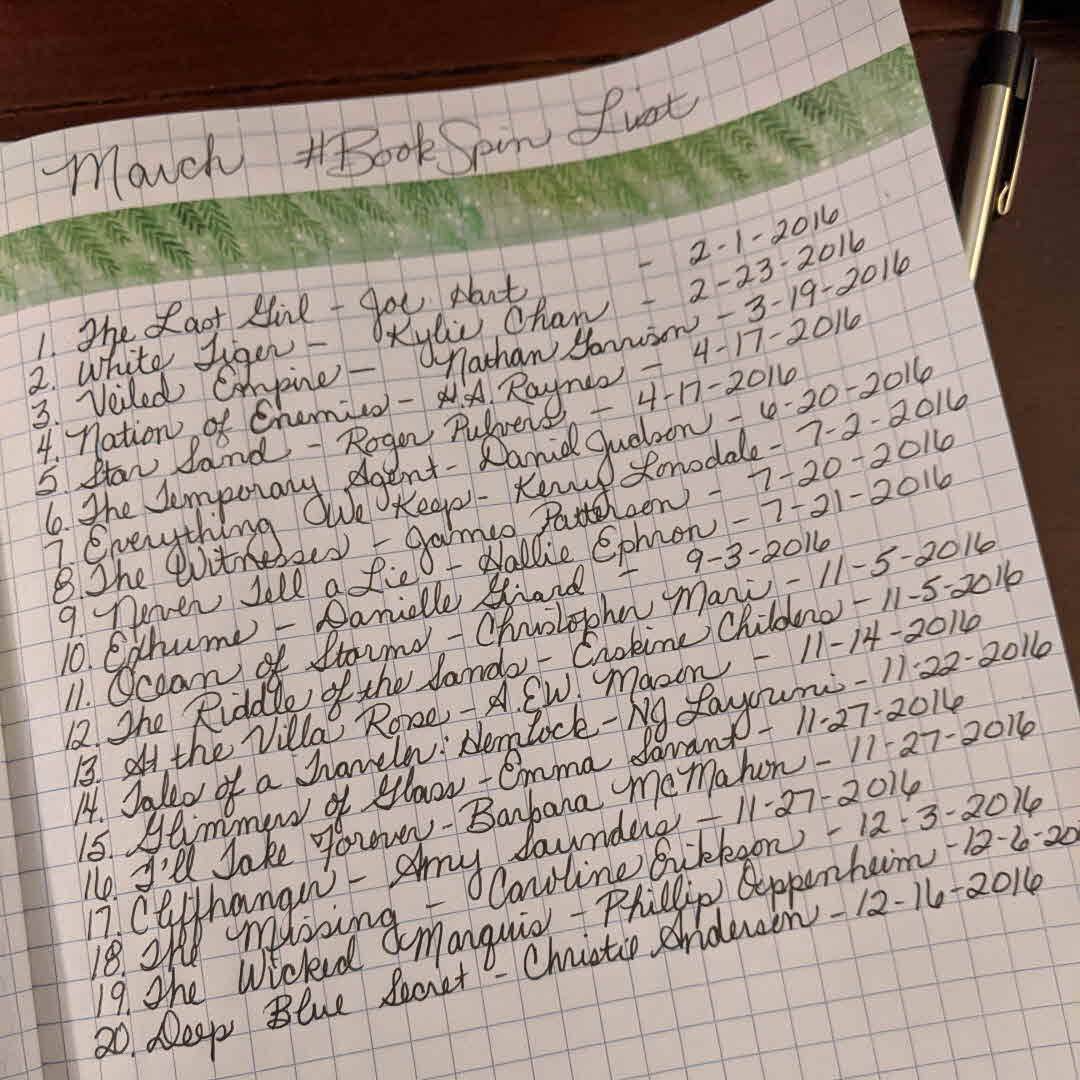 March #BookSpin List
1. The Last Girl - Joe Hart - 2-1-2016
2. White Tiger - Kylie Chan - 2-23-2016
3. Veiled Empire - Nathan Garrison - 3-19-2016
4. Nation of Enemies - H.A. Raynes - 4-17-2016
5. Star Sand - Roger Pulvers - 4-17-2016
6. The Temporary Agent - Daniel Judson - 6-20-2016
7. Everything We Keep - Kerry Lonsdale - 7-2-2016
8. The Witnesses - James Patterson - 7-20-2016
9. Never Tell a Lie - Hallie Ephron - 7-21-2016
10. Exhume - Danielle Girard - 9-3-2016
11. Ocean of Storms - Christopher Mari - 11-5-2016
12. The Riddle of the Sands - Erskine Childers - 11-5-2016
13. At the Villa Rose - A.E.W. Mason - 11-14-2016
14. Tales of a Traveler: Hemlock - NG Layrunis - 11-22-2016
15. Glimmers of Glass - Emma Savant - 11-27-2016
16. I'll Take Forever - Barbara McMahon - 11-27-2016
17. Cliffhanger - Amy Saunders - 11-27-2016
18. The Missing - Caroline Erikkson - 12-3-2016
19. The Wicked Marquis - Phillip Oppenheim - 12-6-20
20. Deep Blue Secret - Christie Anderson - 12-16-2016